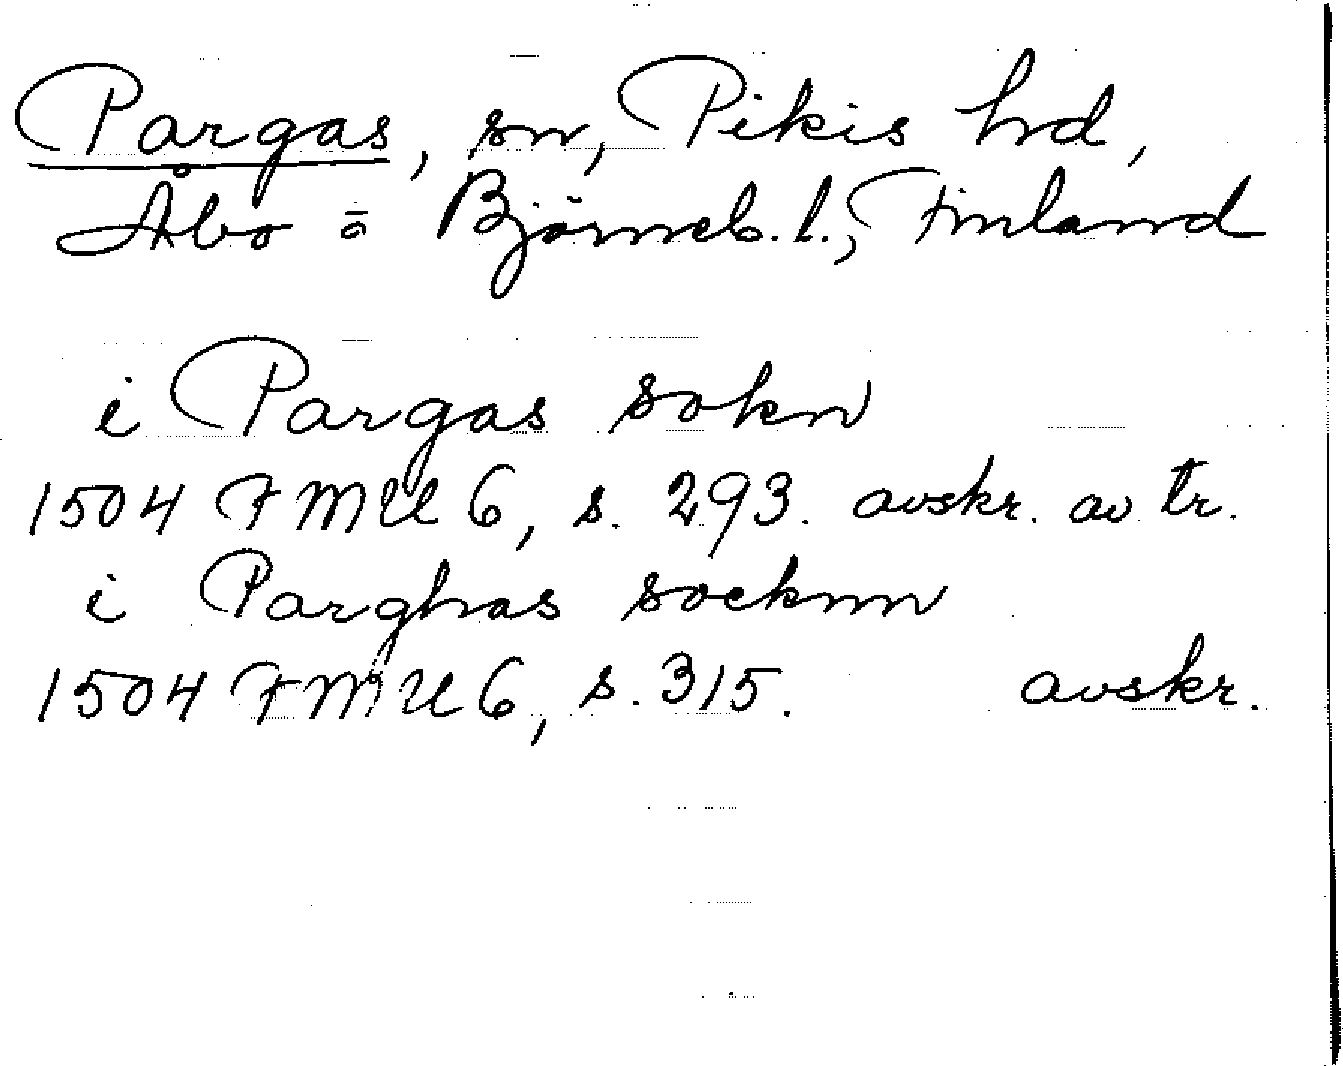 Pargas, sn, Pikis hd,
Åbo o Björneb. l., Finland
i Pargas sokn
1504 FMU 6, s. 293. avskr. av tr.
i Parghas socknn
1504 FMU 6, s. 315. avskr.